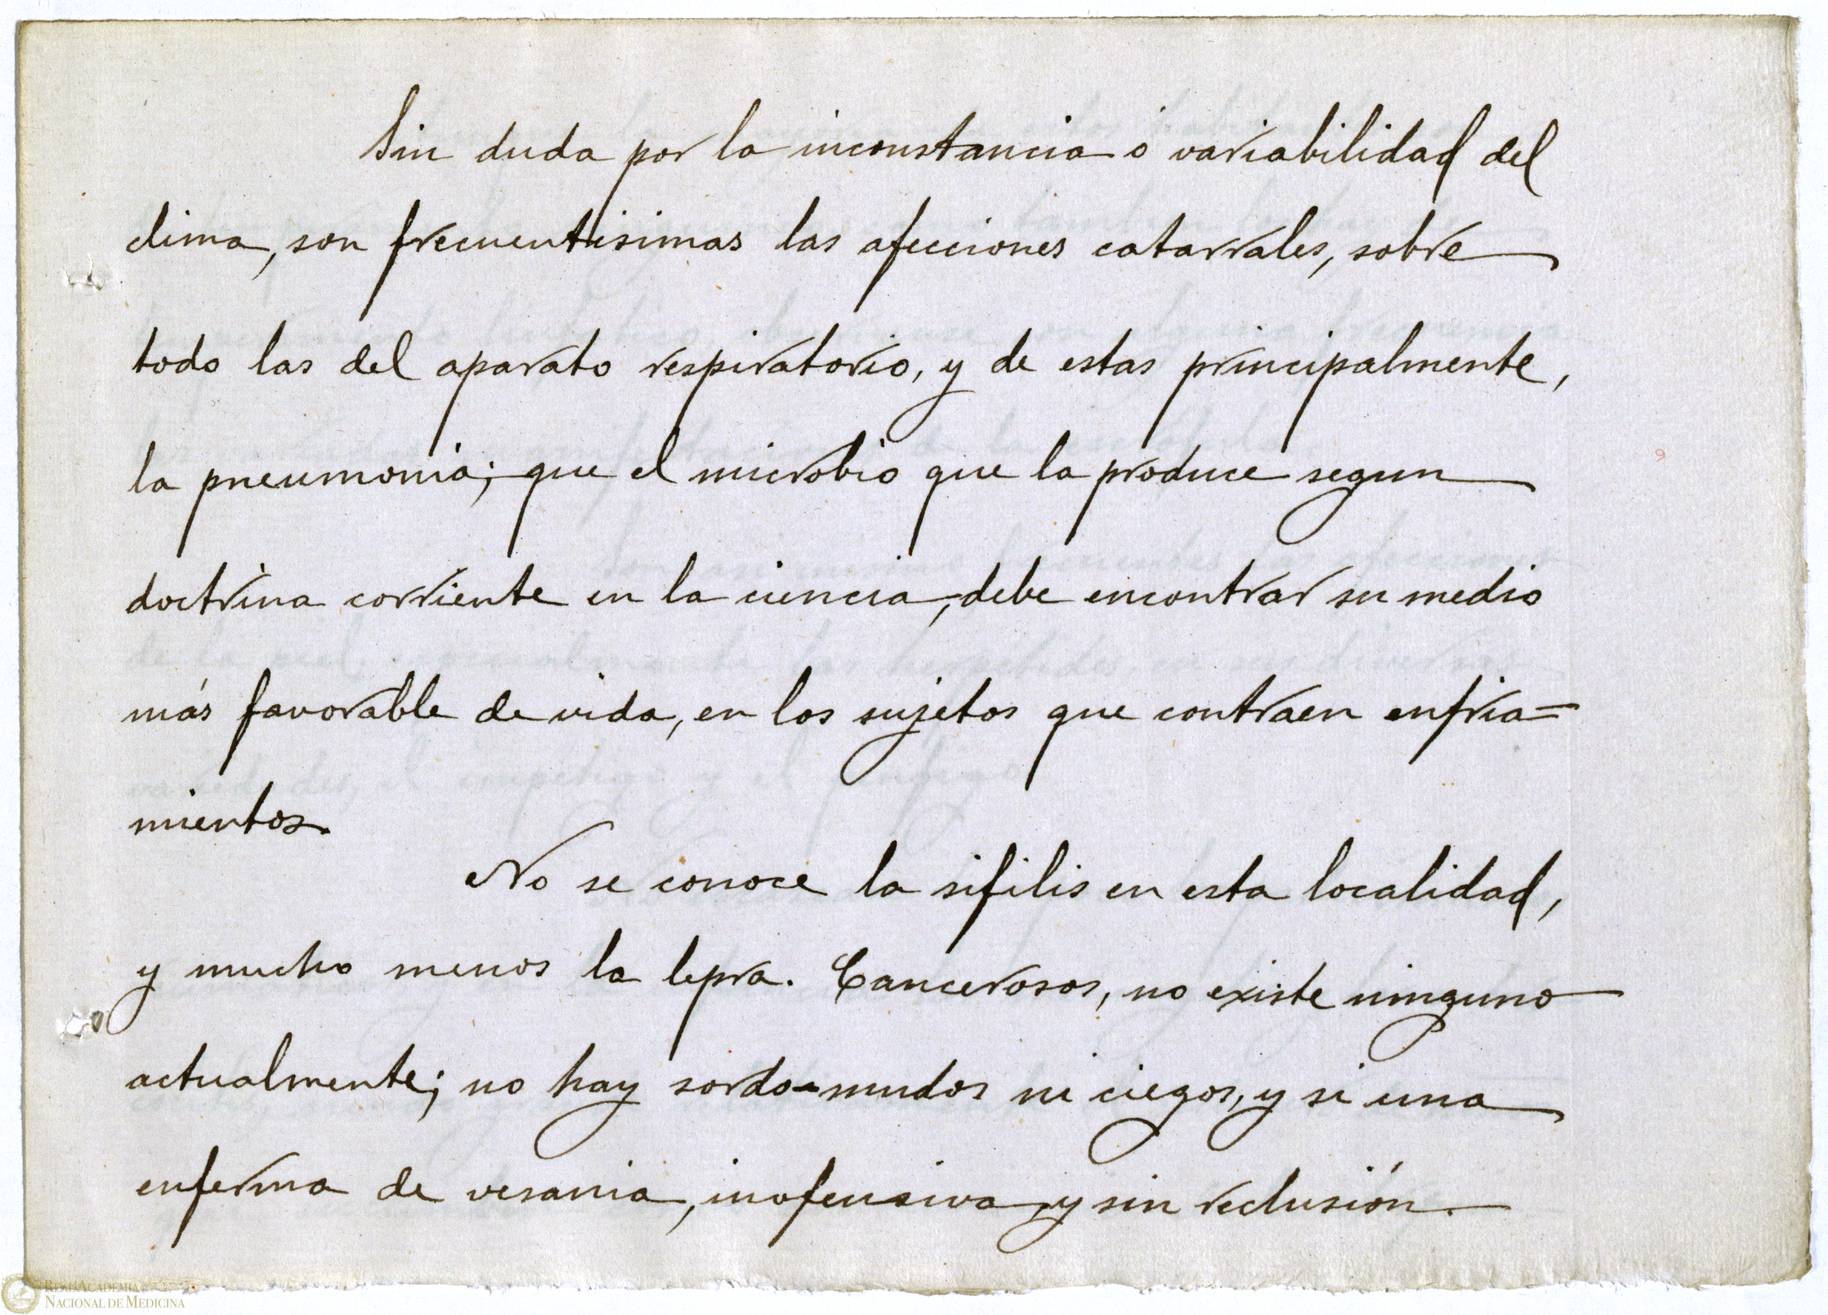 Sin duda por la inconstancia ó variabilidad del
clima, son frecuentisimas las afecciones catarrales, sobre
todo las del aparato respiratorio, y de estas principalmente,
la pneumonia; que el microbio que la produce segun
doctrina corriente en la ciencia, debe encontrar su medio
más favorable de vida, en los sujetos que contraen enfria=
mientos.
No se conoce la sifilis en esta localidad,
y mucho menos la lepra. Cancerosos, no existe ninguno
actualmente; no hay sordo-mudos ni ciegos, y si una
enferma de vesania, inofensiva y sin reclusión.
REAL ACADEMIA
NACIONAL DE MEDICINA